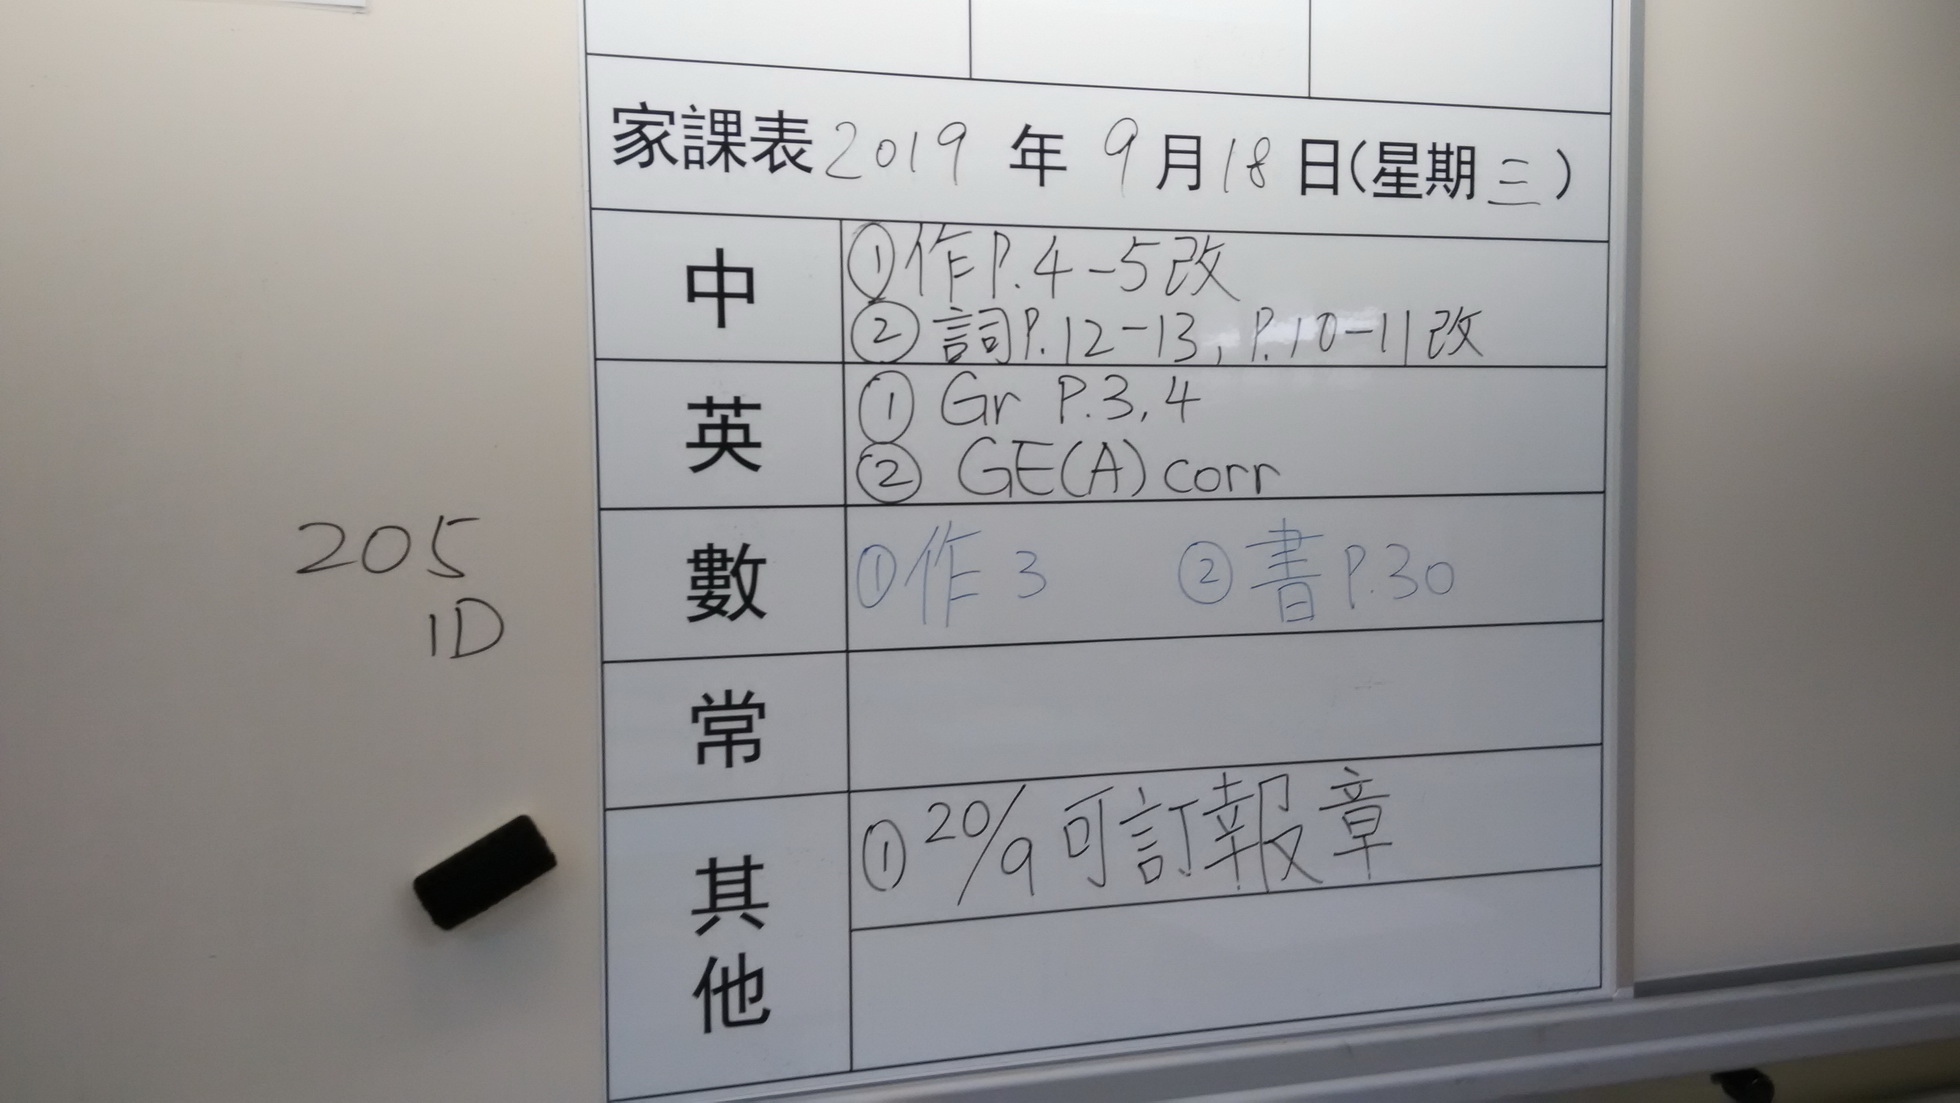 家課表 2019 年 9 月 18 日(星期 三)
中
①作P.4-5改
②詞P.12-13, P.10-11改
英
① Gr P.3,4
② GE(A) corr
數
①作3 ②書P.30
常
其他
①20/9可訂報章
205
1D